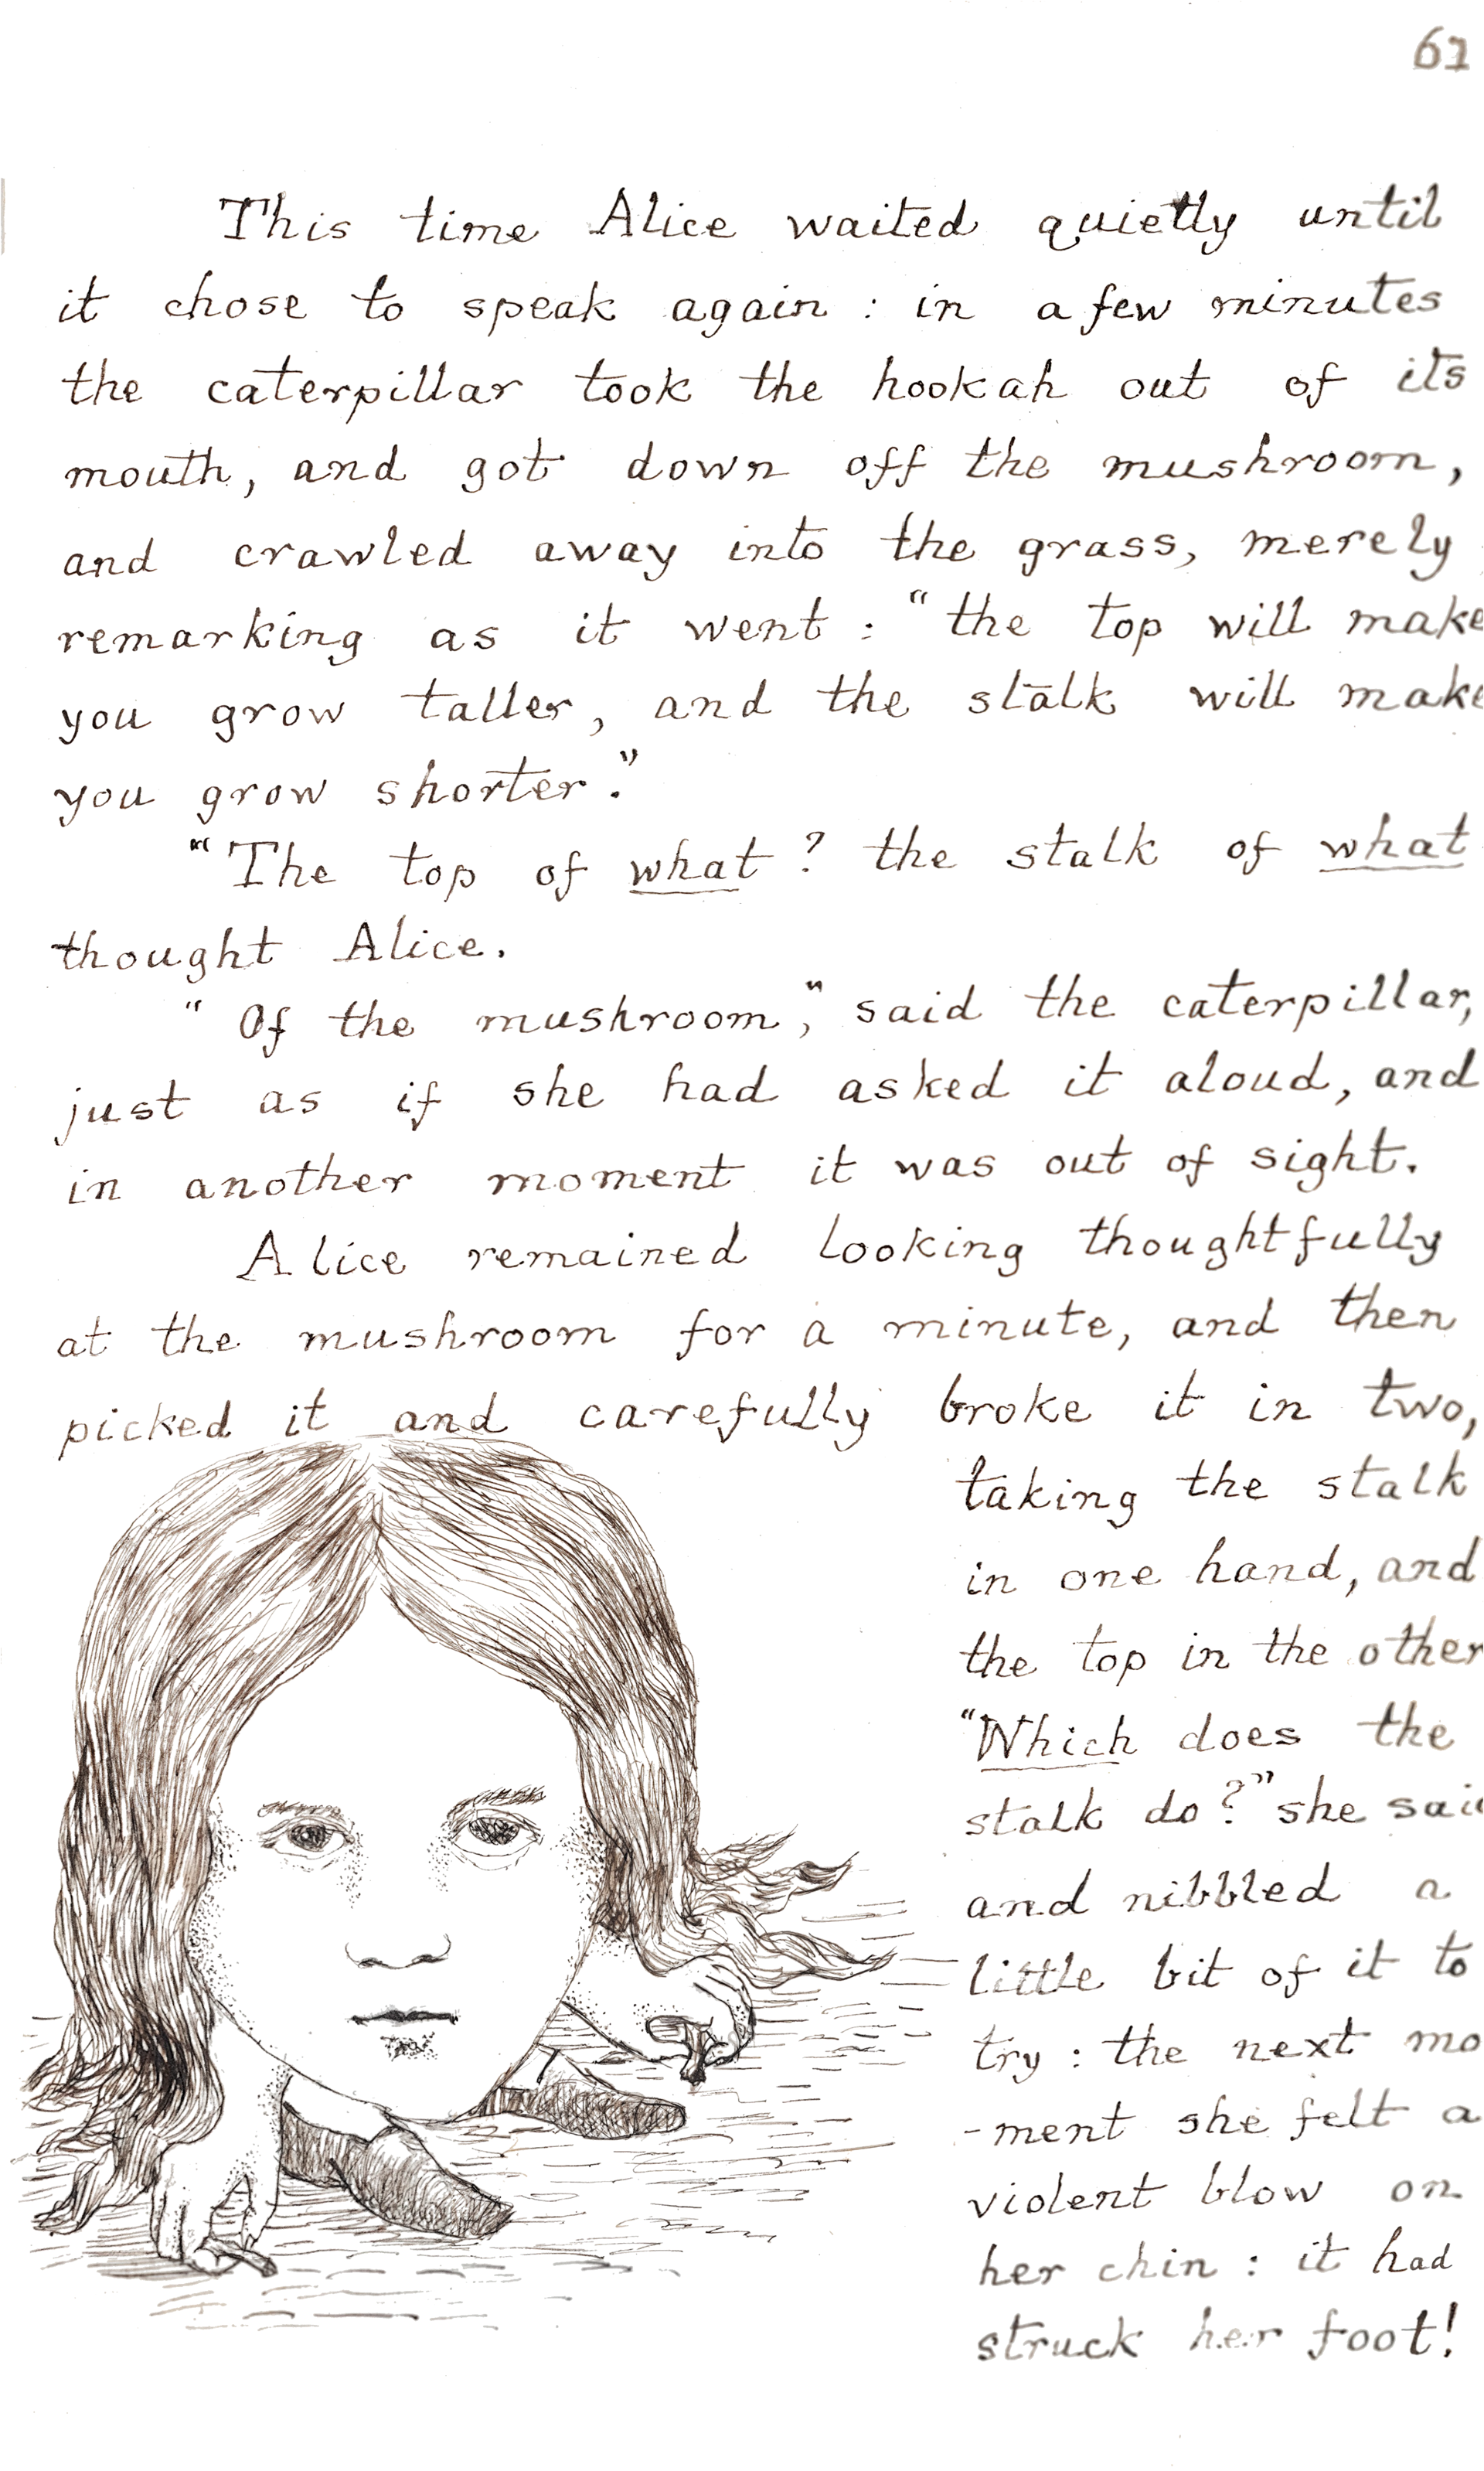 61
This time Alice waited quietly until
it chose to speak again : in a few minutes
the caterpillar took the hookah out of its
mouth, and got down off the mushroom,
and crawled away into the grass, merely
remarking as it went : "the top will make
you grow taller, and the stalk will make
you grow shorter."
"The top of what? the stalk of what
thought Alice.
"Of the mushroom," said the caterpillar,
just as if she had asked it aloud, and
in another moment it was out of sight.
Alice remained looking thoughtfully
at the mushroom for a minute, and then
picked it and carefully broke it in two,
taking the stalk
in one hand, and
the top in the other
"Which does the
stalk do?" she said
and nibbled a
little bit of it to
try : the next mo
-ment she felt a
violent blow on
her chin : it had
struck her foot!